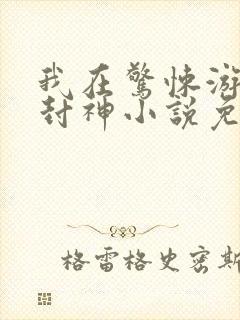 我在驚悚游
封神小說免
格雷格史密斯